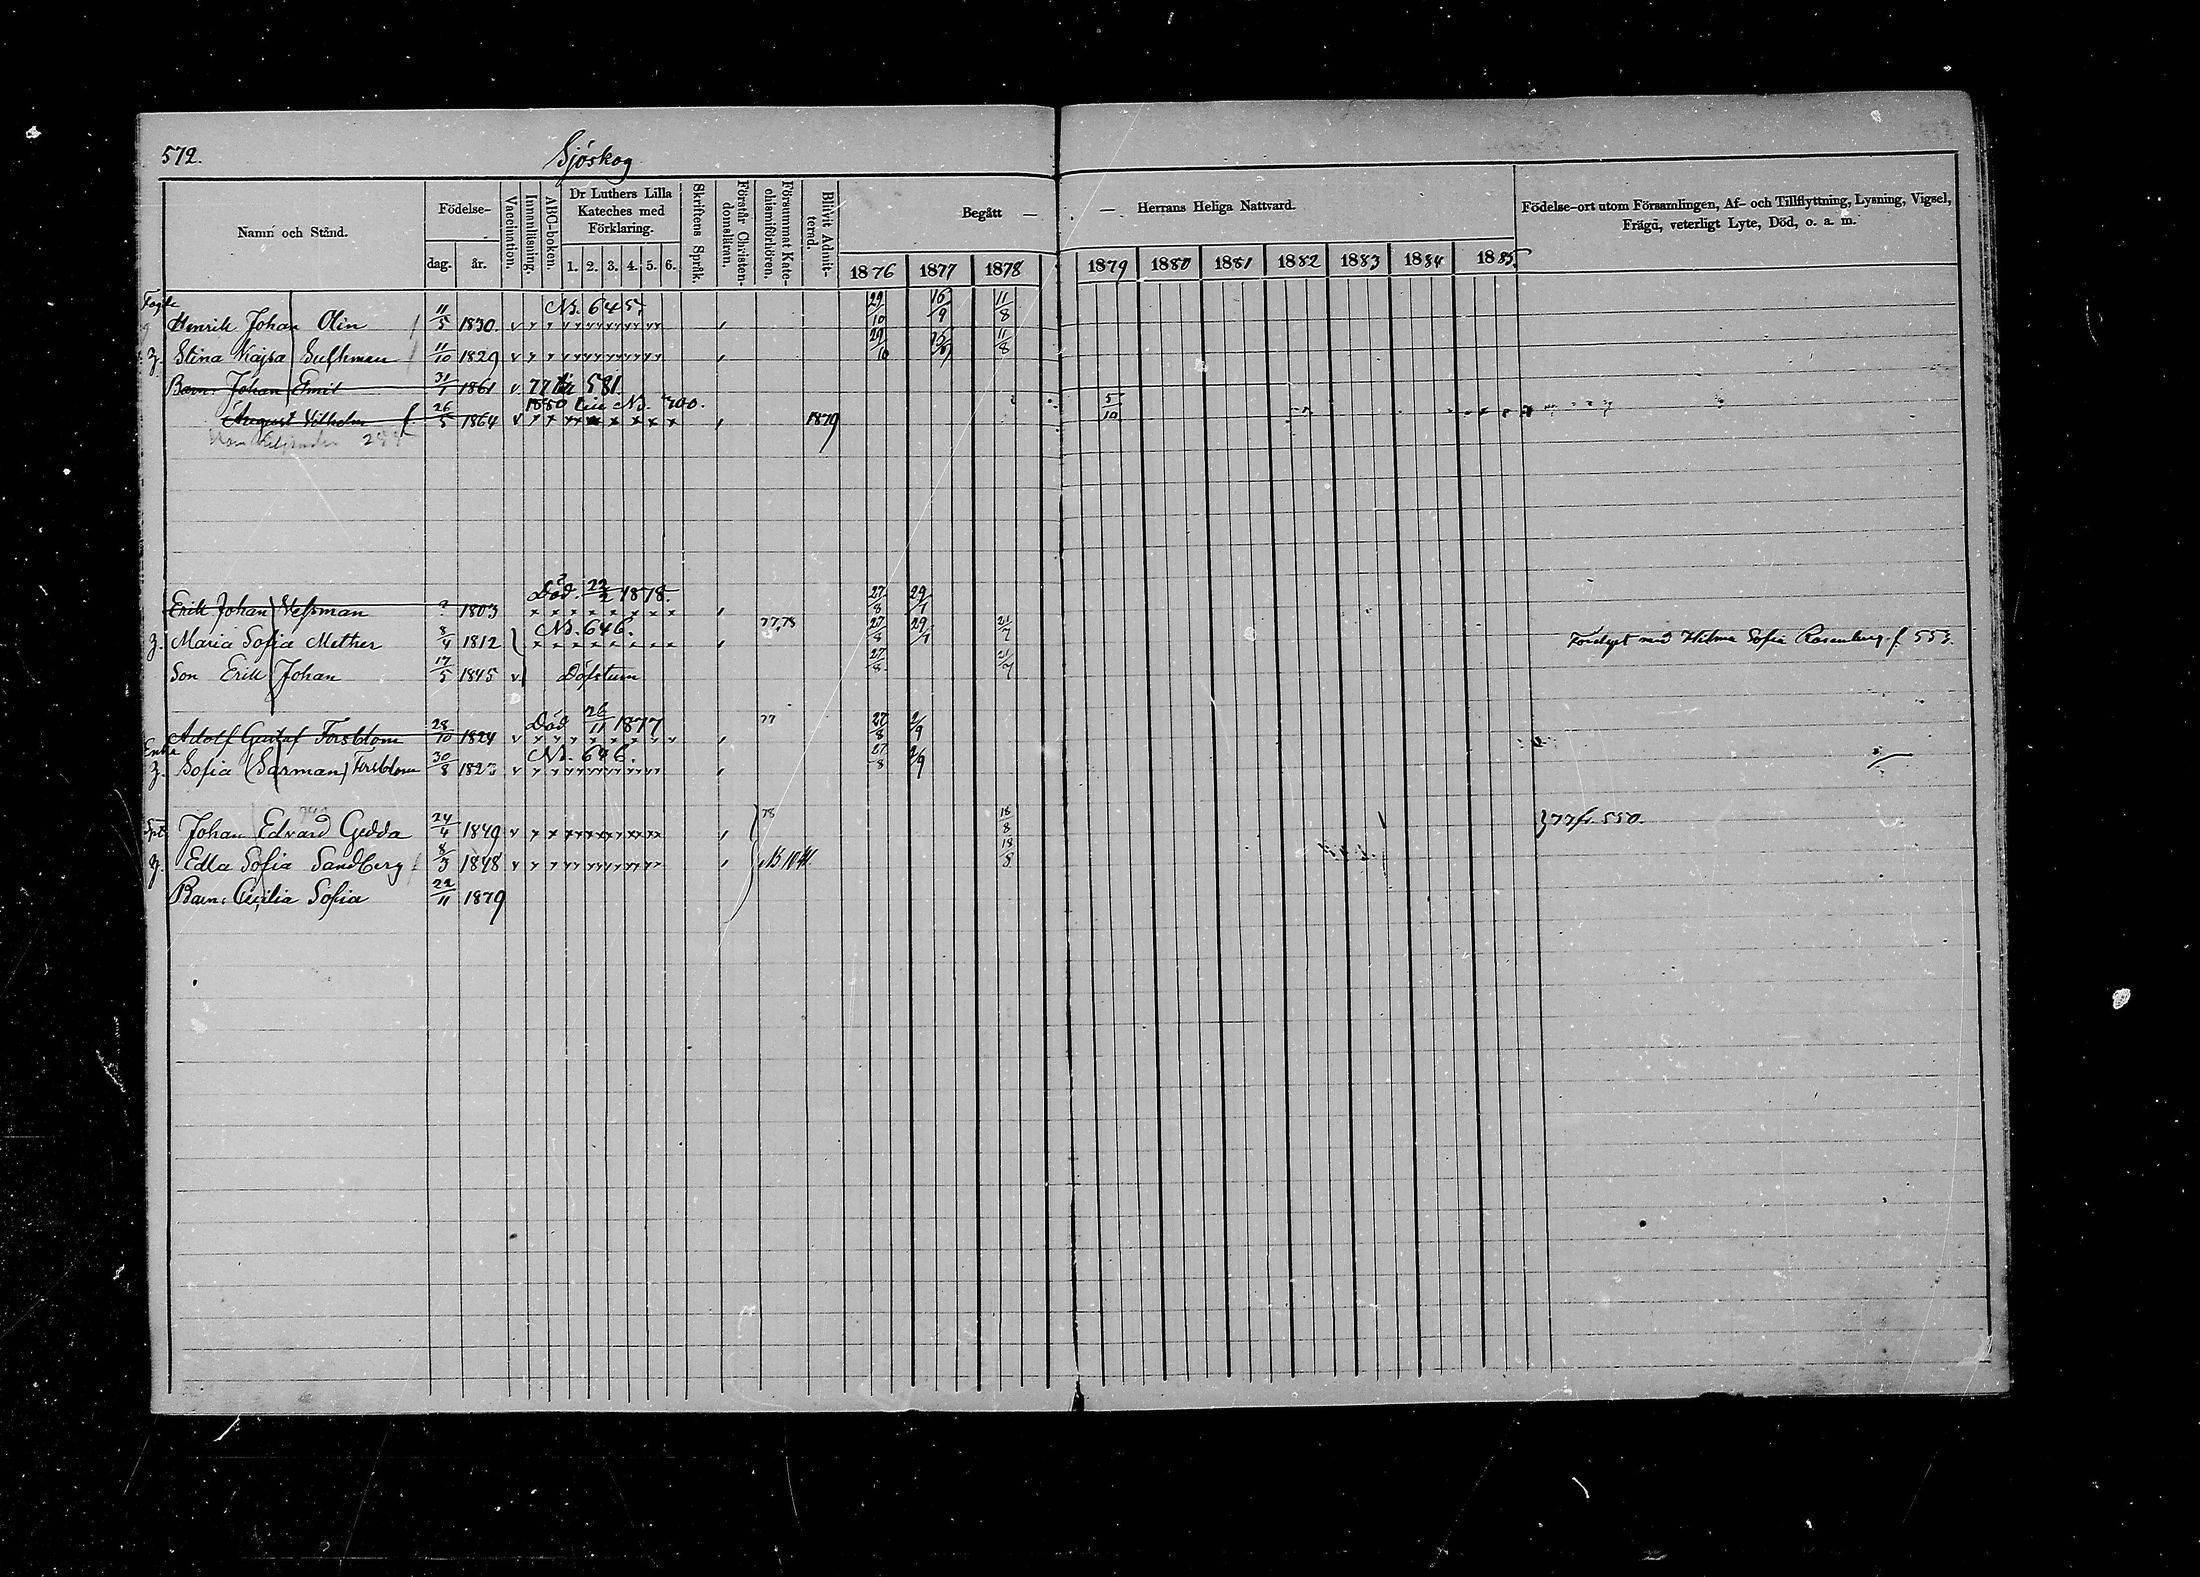 572. Sjöskog
Namn och Stånd. Födelse- dag. år. Vaccination. Innanläsning. ABC-boken. Dr Luthers Lilla Kateches med Förklaring. 1. 2. 3. 4. 5. 6. Skriftens Språk. Förstår Christendomsläran. Försummat Katechismiförhören. Blifvit Admitterad. Begått — — Herrans Heliga Nattvard. 1876 1877 1878 1879 1880 1881 1882 1883 1884 1885. Födelse-ort utom Församlingen, Af- och Tillflyttning, Lysning, Vigsel, Frägd, veterligt Lyte, Död, o. a. m.
N.B. 645.
Henrik Johan Olin 11/5 1830. v 29/10 16/9 11/8
h. Stina Kajsa 11/10 1829 v 29/10 11/8
Barn: Johan Emil 31/7 1861 v. 77 till 581.
1880 N.B. 700.
August Vilhelm 26/5 1864 v 1879 5/10
Död. 1878.
Erik Johan Wessman ? 1803 27/8 29/1
N.B. 646. 77,78
h. Maria Sofia Mether 8/4 1812 27/8 29/1 21/7 med Hilma Sofia Rosenberg f. 553.
Son Erik Johan 17/5 1845 v Döfstum 27/8 21/7
Död 26/11 1877 77
Adolf Gustaf Forsblom 28/10 1824 v 27/8 2/9
Enka N.B. 646.
h. Sofia (Sarman) Forsblom 30/8 1823 v 27/8 2/9
Johan Edvard Gedda 24/4 1849 v 78 18/8 77 fr. 550.
h. Edla Sofia Sandberg 8/3 1848 v 18/8
Barn: Cecilia Sofia 22/11 1879